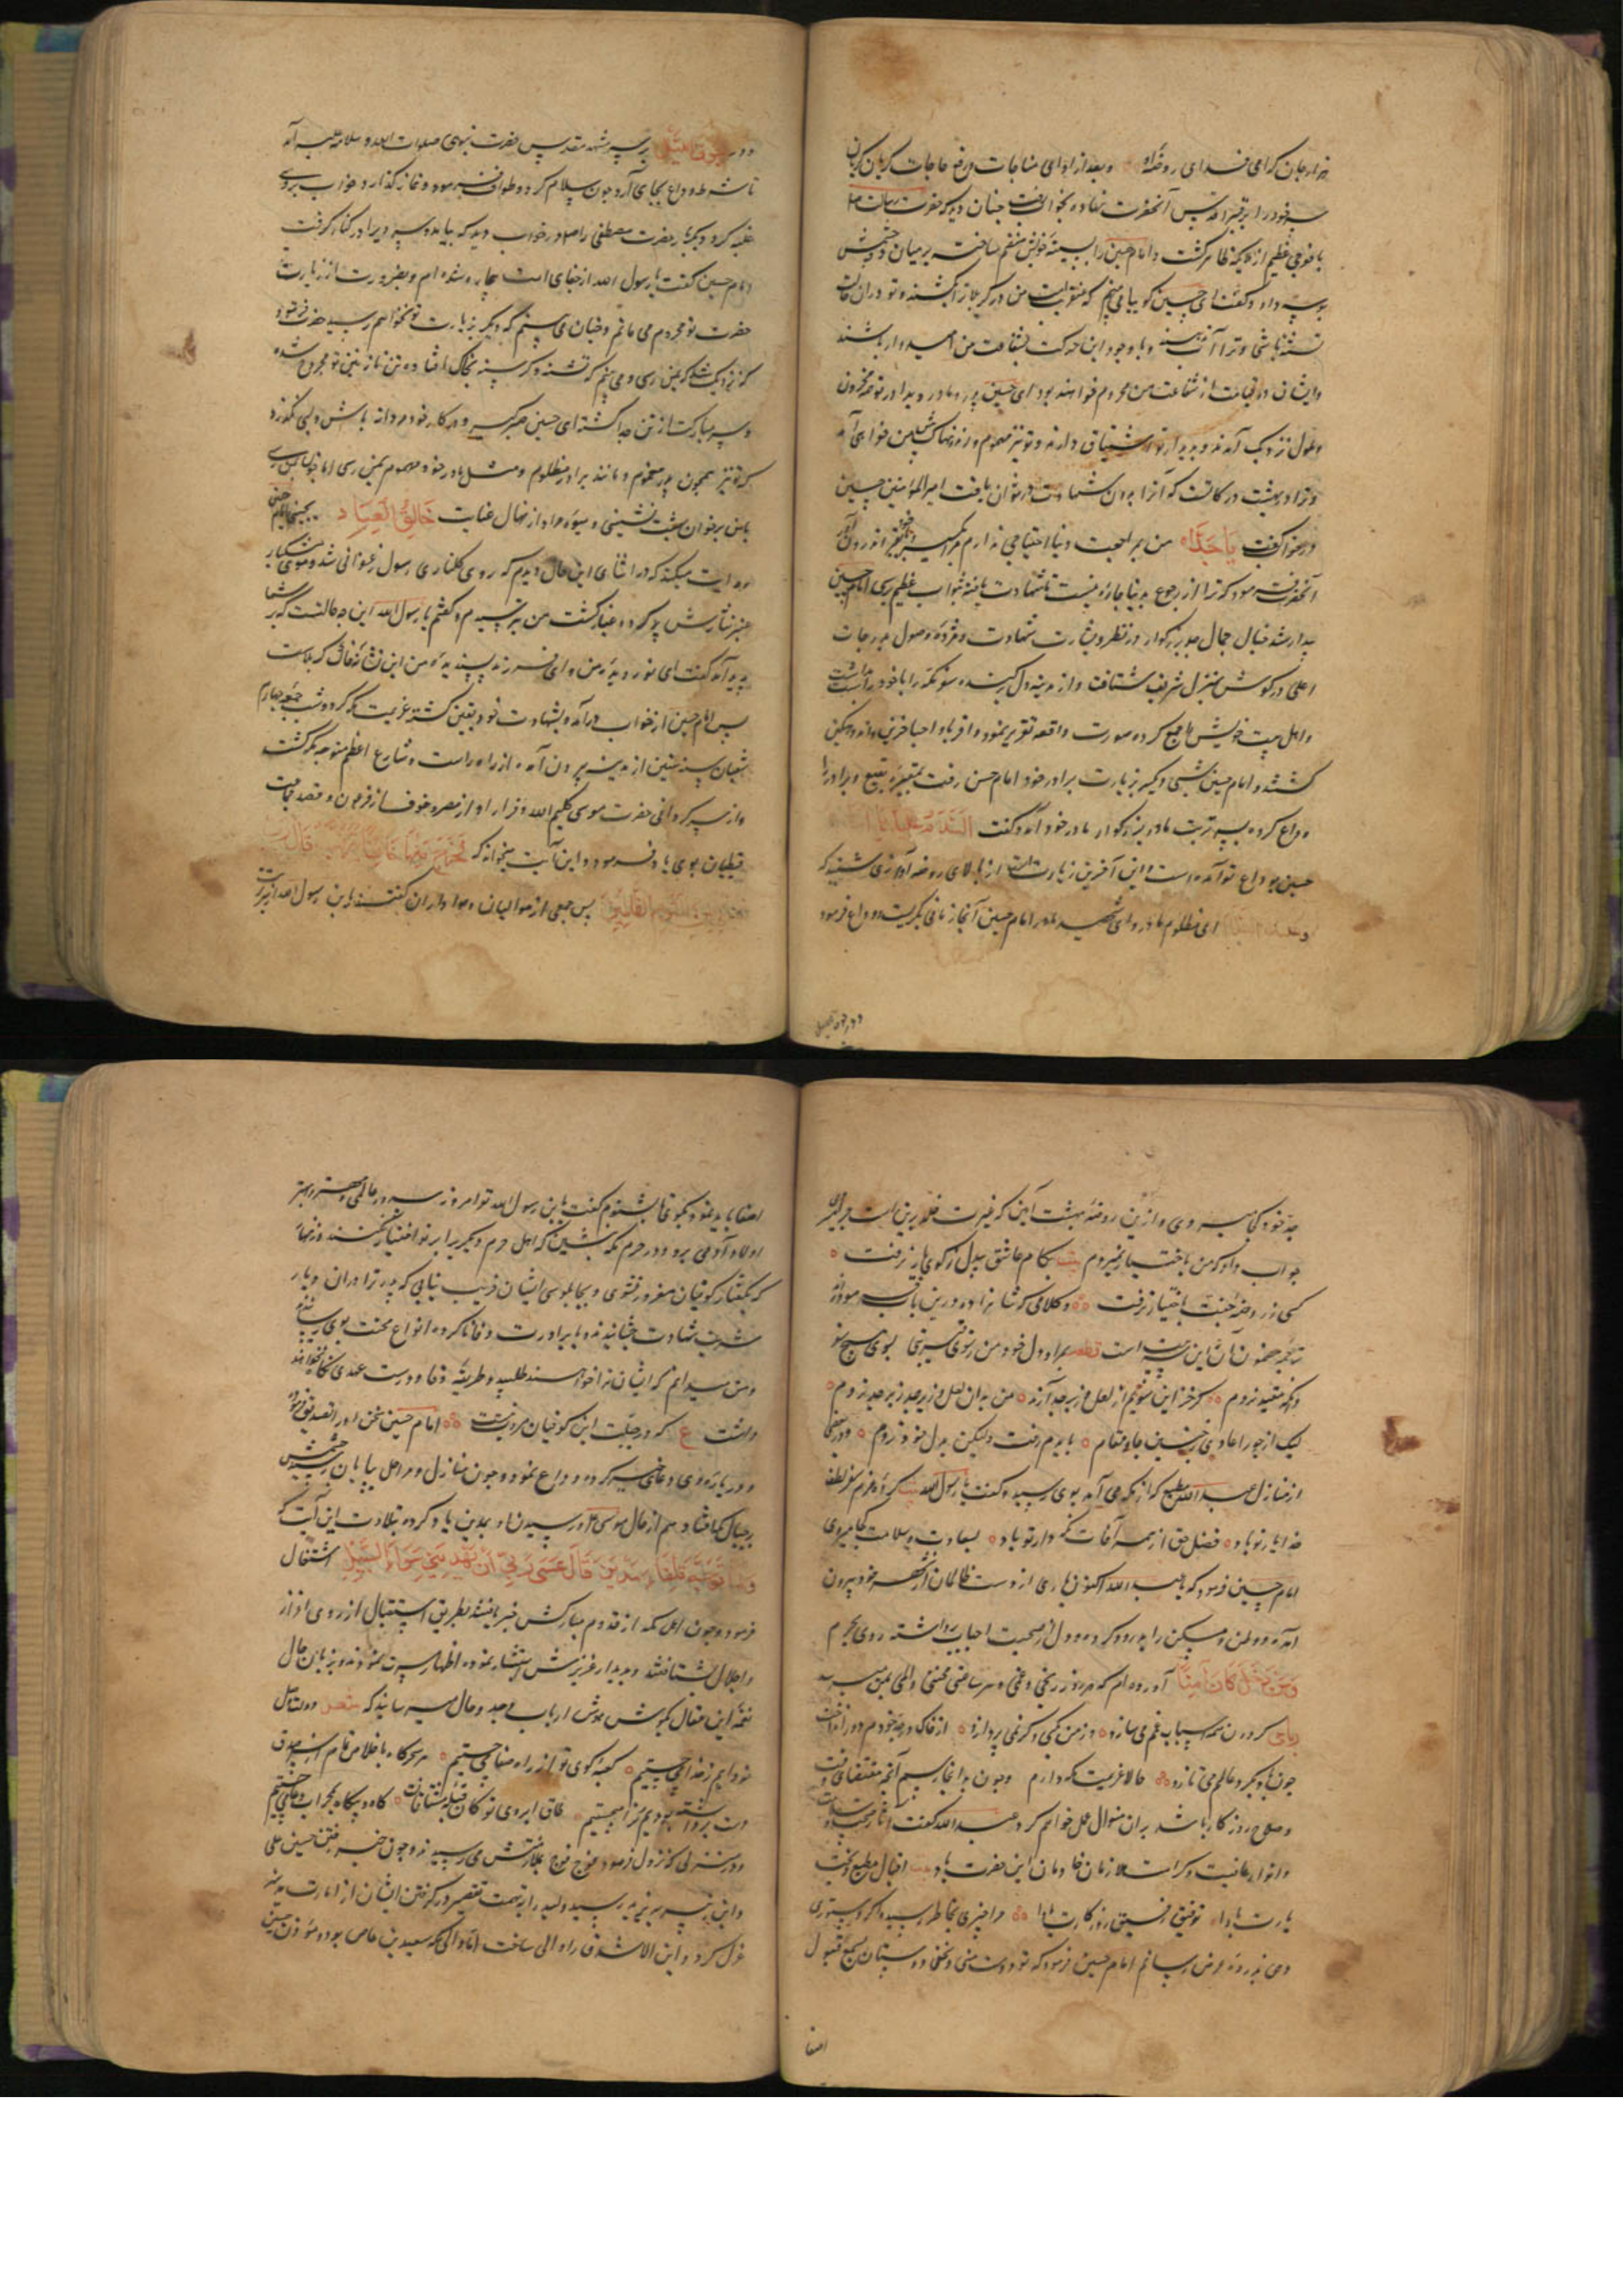 هزار جان گرامی فدای روضهٔ او و بعد از ادای مناجات و رفع حاجات گریان گریان
سر خود را بر قبر اقدس آنحضرت نهاده بخواب رفت چنان دید که حضرت رسالت
با فوجی عظیم از ملایکه ظاهر گشت و امام حسین را بسینهٔ خویش منضم ساخت بر میان دو چشمش
بوسه داد و گفت ای حسین گویا می بینم که عنقریب امت من در کربلا ترا بکشند و تو در آن حالت
تشنه باشی و ترا آب ندهند و با وجود این حرکت بشفاعت من امیدوار باشند
و ایشان در قیامت از شفاعت من محروم خواهند بود ای حسین پدر و مادر و برادر تو محزون
و ملول نزدیک آمدند و بدیدار تو اشتیاق دارند و تو نیز مهموم و زخمناک پیش من خواهی آمد
و ترا در بهشت درجاتست که آنرا بدون شهادت در نتوان یافت امیرالمؤمنین حسین
در خواب گفت یا جداه من بمراجعت دنیا احتیاجی ندارم مرا بگیر و با خود بقبر اندرون آور
آنحضرت فرمود که ترا از رجوع بدنیا چاره نیست تا شهادت یافته بثواب عظیم رسی امام حسین
بیدار شد خیال جمال جد بزرگوار در نظر و بشارت شهادت و مژدهٔ وصول بدرجات
اعلی در گوش بمنزل شریف شتافت و از مدینه دل برکنده سفر مکه را با خود راست داشت
و اهل بیت خویش را جمع کرده صورت واقعه تقریر نمود و اقربا و احبا حزین و اندوهگین
گشتند و امام حسین شبی دیگر بزیارت برادر خود امام حسن رفت بمقبرهٔ بقیع و برادر را
وداع کرده بسر تربت مادر بزرگوار مادر خود آمد و گفت السلام علیک یا اماه
حسین بوداع تو آمده است و این آخرین زیارت است از بالای روضه آوازی شنید که
و علیک السلام ای مظلوم مادر و ای شهید مادر امام حسین آنجا زمانی بگریست و وداع فرمود
و در جوف اللیل
و در جوف اللیل بر سر مشهد مقدس حضرت نبوی صلوات الله و سلامه علیه آمد
تا شرط وداع بجای آرد چون سلام کرد و طواف فرمود و نماز گذارد خواب بر وی
غلبه کرد و دیگر بار حضرت مصطفی را در خواب دید که بیامد و سر ویرا در کنار گرفت
امام حسین گفت یا رسول الله از جفای امت بیچاره شده ام و بضرورت از زیارت
حضرت تو محروم می مانم و چنان می بینم که دیگر بزیارت تو نخواهم رسید حضرت فرمود
که نزدیک شد که بمن رسی و می بینم که تشنه و گرسنه بخاک افتاده تن نازنین تو مجروح شده
و سر مبارکت از تن جدا گشته ای حسین صبر گیر و در کار خود مردانه باش و بسی نگذرد
که تو نیز همچون پدر مغموم و مانند برادر مظلوم و مثل مادر خود مهموم بمن رسی
با من بر خوان بهشت نشینی و میوهٔ مراد از نهال عنایت خالق العباد بچینی امام حسین
روایت میکند که در اثنای این حال دیدم که روی گلناری رسول زعفرانی شد و موی مشکبار
عنبر نثارش پر گرد و غبار گشت من بترسیدم و گفتم یا رسول الله این چه حالتست که بر شما
پدید آمد گفت ای نور دیدهٔ من و ای فرزند پسندیدهٔ من این نشانهٔ خاک کربلاست
پس امام حسین از خواب درآمد و بشهادت خود یقین گشته عزیمت مکه کرد و شب جمعه چهارم
شعبان سنه ستین از مدینه بیرون آمد و از راه راست و شارع اعظم متوجه مکه گشت
و از سرگردانی حضرت موسی کلیم الله و فرار او از مصر و خوف از فرعون و قصد جماعت
قبطیان بوی یاد فرمود و این آیت میخواند که فخرج منها خائفا یترقب قال رب
نجنی من القوم الظالمین پس جمعی از موالیان و هواداران گفتند یا ابن رسول الله از تربت
جد خود کجا میروی و ازین روضهٔ بهشت آیین که غیرت خلد برین است چرا میروی
جواب داد که من باختیار نمیروم بیت بکام عاشق بیدل ز کوی یار نرفت
کسی ز روضهٔ جنت باختیار نرفت و کلامی که شاهزاده درین باب فرموده
ترجمهٔ مضمون آن این است قطعه بمراد دل خود من ز سوی یثرب بسوی هیچ سو
و هیچ مقید نروم گر جز این سو بخرم از لعل و زبرجد آرند من بدان لعل و زبرجد نروم
لیک از جور اعادی ز چنین جا و مقام بایدم رفت ولیکن بدل خود نروم و در بعضی
از منازل عبد الله مطیع که از مکه می آمد بوی رسید و گفت یا ابن رسول الله بیت کرده عزم سفر لطف
خدا یار تو باد فضل حق از همه آفات نگهدار تو باد بسعادت و سلامت کجا میروی
امام حسین فرمود که یا عبد الله اکنون باری از دست ظالمان از شهر خود بیرون
آمده و وطن و مسکن را پدرود کرده و دل از صحبت احباب برداشته روی بحرم
و من دخله کان آمنا آورده ام که هر روز رنجی و غمی و هر ساعتی محنتی و المی بمن میرسد
رباعی گردون همه اسباب غم می سازد وز من بکمی و گر نمی پردازد از خاک در جد خودم دور انداخت
چون باد بگرد عالمم می تازد حالا عزیمت مکه دارم و چون بدانجا رسم آنچه مقتضای وقت
و صلاح روزگار باشد بر آن منوال عمل خواهم کرد عبد الله گفت آثار صحت و سلامت
و انوار عافیت و کرامت ملازمان خادمان این حضرت باد بیت اقبال مطیع و بخت
یارت بادا توفیق رفیق روزگارت بادا مرا چیزی بخاطر رسیده اگر دستوری
دهی بذروهٔ عرض رسانم امام حسین فرمود که تو دوست منی و سخن دوستان بسمع قبول
اصغا
اصغا باید نمود بگوی تا بشنوم گفت یا ابن رسول الله تو امروز سرور عالمی و مهتر و بهتر
اولاد آدمی برو و در حرم مکه بنشین که اهل حرم دیگریرا بر تو اختیار نکنند و زنهار
که بگفتار کوفیان مغرور نشوی و بچاپلوسی ایشان فریب نیابی که پدر ترا در آن دیار
شربت شهادت چشانیدند و با برادرت وفا ناکرده انواع محنت بوی رسانیدند
و من میدانم که ایشان ترا خواهند طلبید و طریقهٔ وفا و درست عهدی نگاه نخواهند
داشت ع که در جبلت این کوفیان مروت نیست امام حسین سخن او را تصدیق فرمود
و در بارهٔ وی دعای خیر کرده وداع نمود و چون منازل و مراحل بپایان رسید چشمش
بر جبال مکه افتاد هم از حال موسی و رسیدن او بمدین یاد کرده بتلاوت این آیت که
و لما توجه تلقاء مدین قال عسی ربی ان یهدینی سواء السبیل اشتغال
فرمود و چون اهل مکه از قدوم مبارکش خبر یافتند بطریق استقبال از روی اعزاز
و اجلال بشتافتند و بدیدار عزیزش استبشار نموده اظهار مسرت نمودند و بزبان حال
نغمهٔ این مقال بگوش هوش ارباب وجد و حال میرسانیدند که شعر
بودایم ز خدا می جستیم کعبهٔ کوی تو از راه صفا می جستیم
دست برداشته بودیم ترا می جستیم طاق ابروی تو کان قبلهٔ مشتاقانست گاه و بیگاه بمحراب دعا می جستیم
و در منزلی که نزول فرمود فوج فوج بملازمتش می رسیدند و چون خبر رفتن حسین علی
و ابن زبیر بیزید رسید ولید را بتهمت تقصیر در گرفتن ایشان از امارت مدینه
عزل کرد و ابن الاشدق را والی ساخت اما والی مکه سعید بن عاص بود و مؤذن حسین